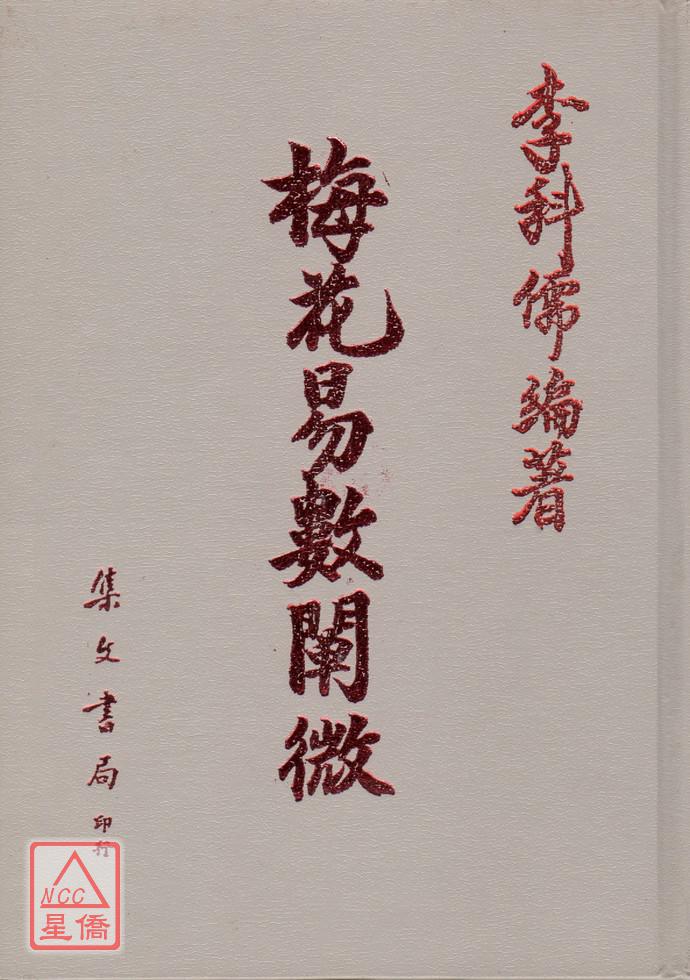 李科儒編著
梅花易數闡微
集文書局印行
NCC
星僑